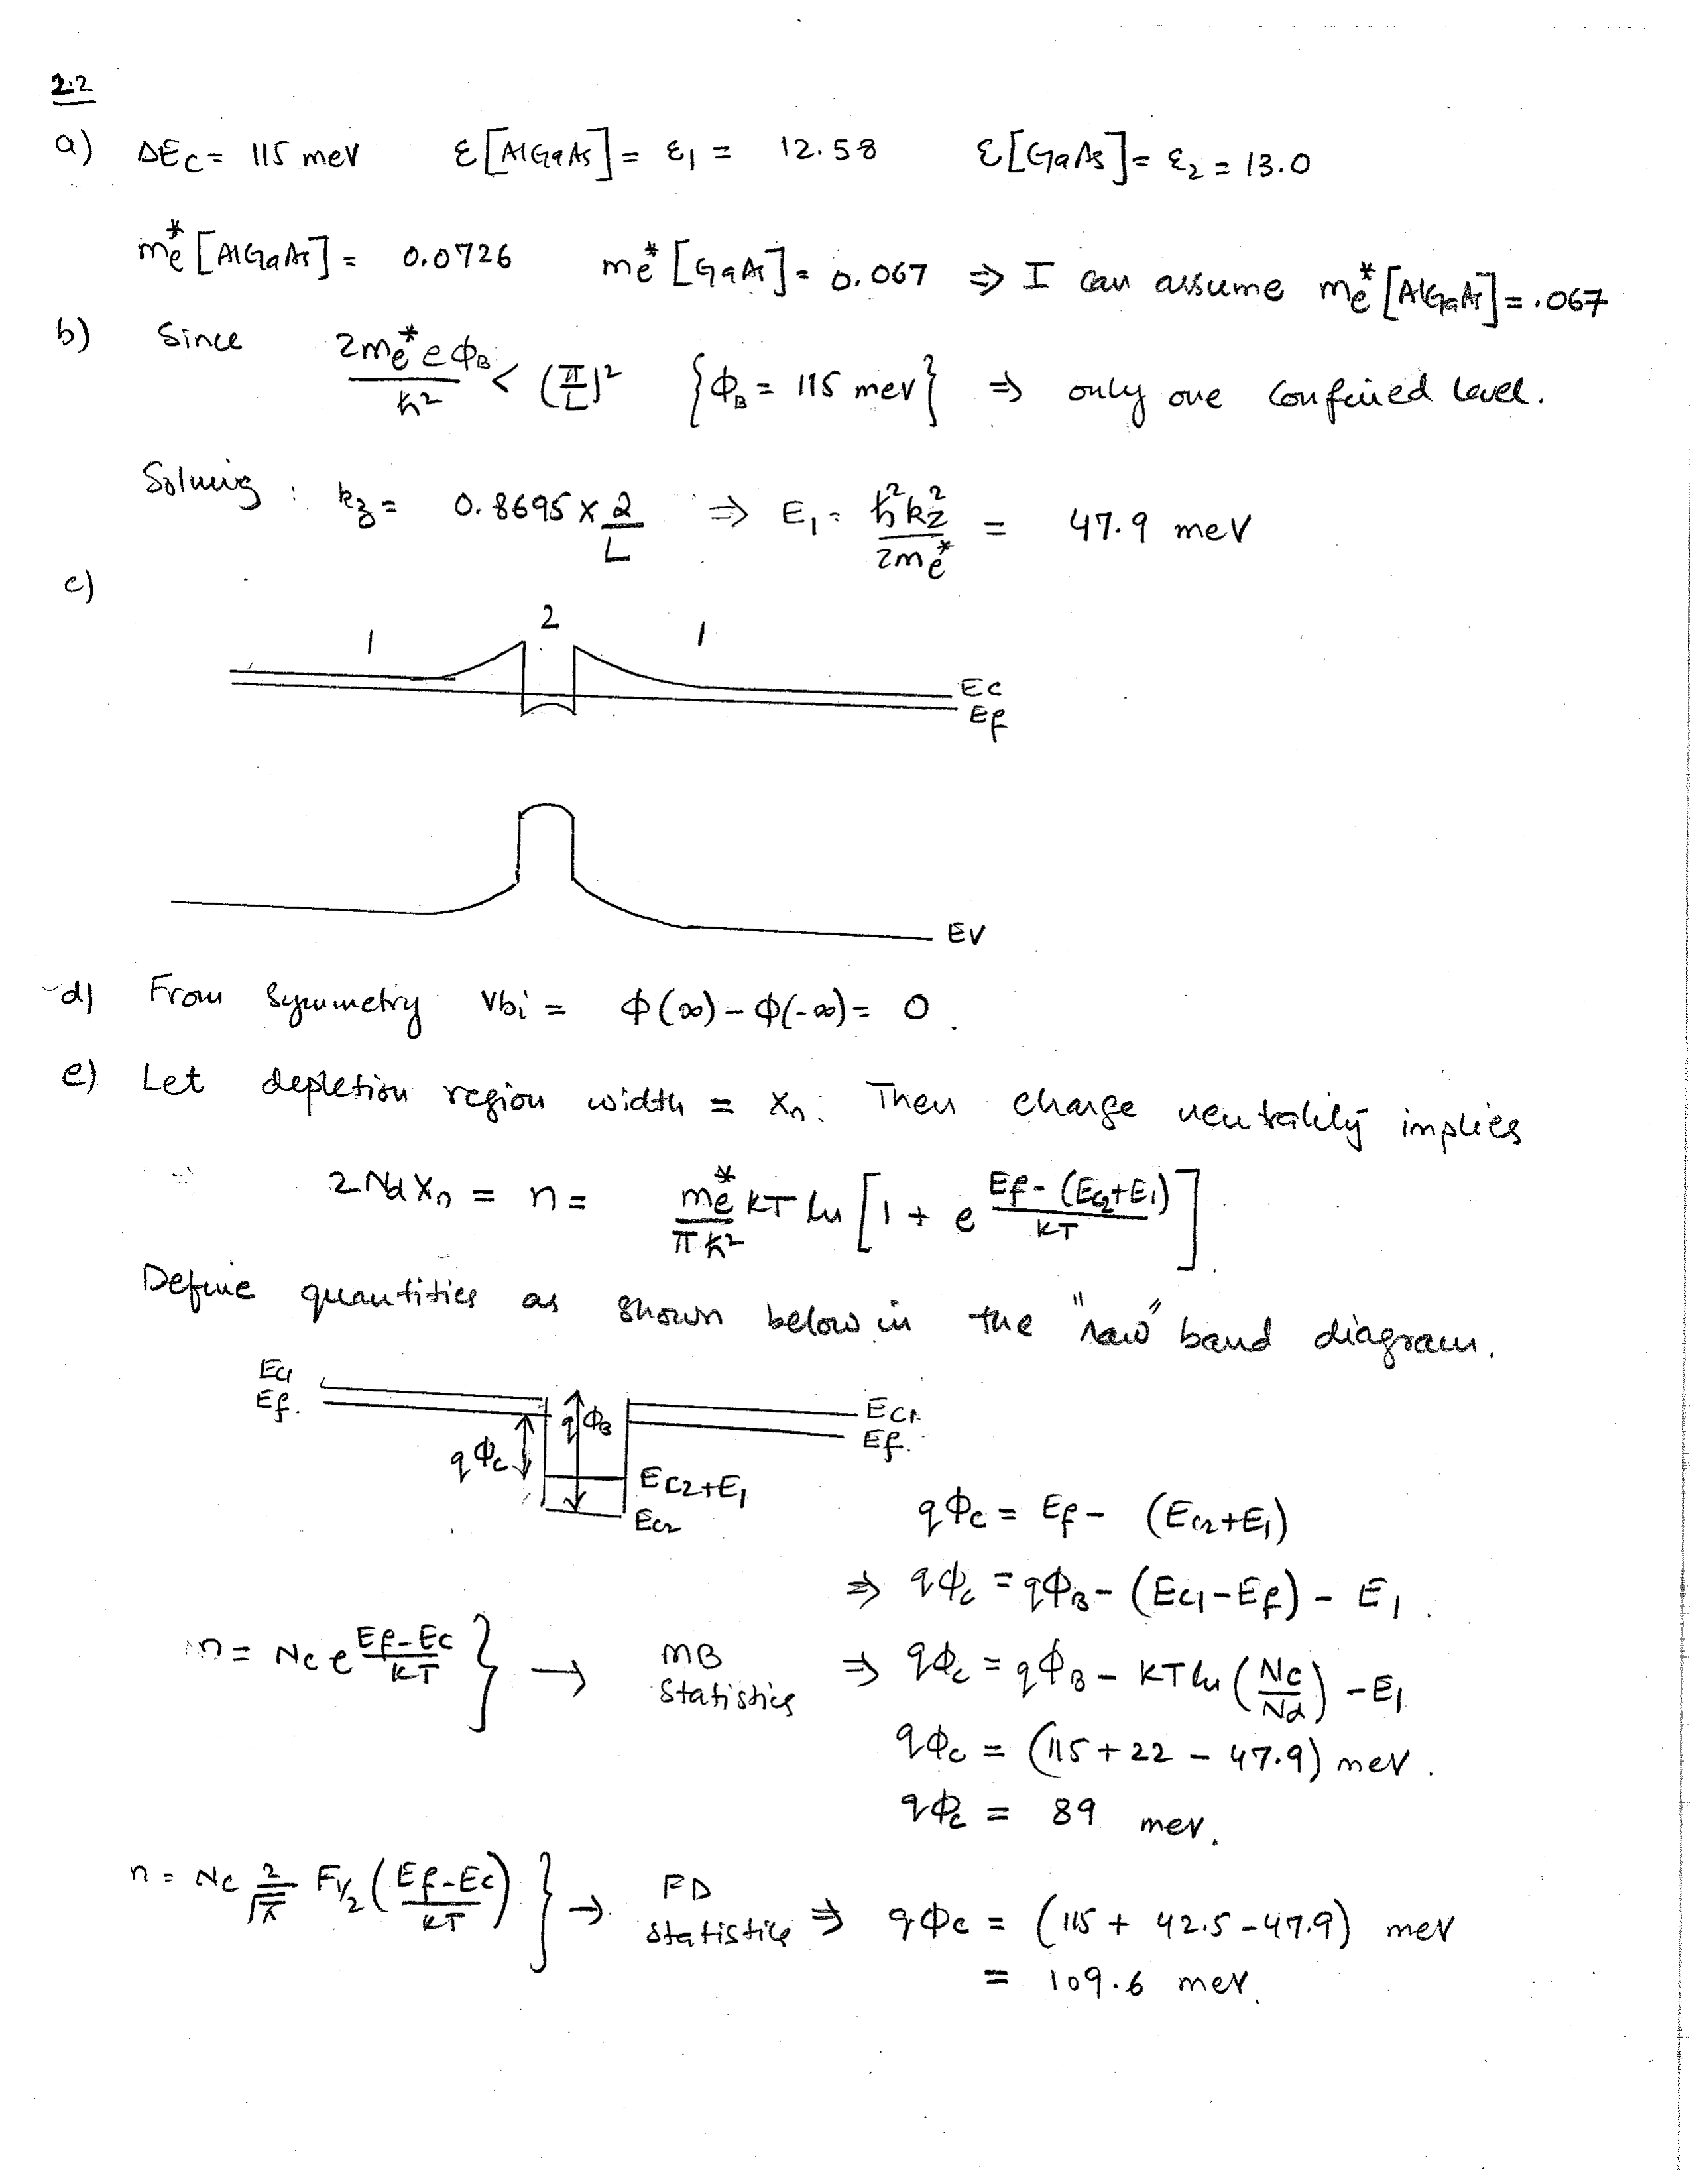 2.2
a) ΔEc = 115 meV ε[AlGaAs] = ε1 = 12.58 ε[GaAs] = ε2 = 13.0
me* [AlGaAs] = 0.0726 me* [GaAs] = 0.067 ⇒ I can assume me* [AlGaAs] = .067
b) Since 2me* e ΦB / ħ² < (π/L)² {ΦB = 115 meV} ⇒ only one confined level.
Solving : kz = 0.8695 × 2/L ⇒ E1 = ħ²kz² / 2me* = 47.9 meV
c)
1 2 1
Ec
Ef
EV
d) From symmetry Vbi = Φ(∞) – Φ(-∞) = 0.
e) Let depletion region width = xn. Then charge neutrality implies
2NdXn = n = me*/πħ² KT ln [1 + e^(Ef - (Ec2+E1))/KT]
Define quantities as shown below in the "raw" band diagram.
Ec1
Ef.
qΦB
Ec1
Ef.
qΦc
Ec2+E1
Ec2
qΦc = Ef - (Ec2+E1)
⇒ qΦc = qΦB - (Ec1-Ef) - E1.
n = Nc e^(Ef-Ec)/KT } → MB Statistics ⇒ qΦc = qΦB - KT ln (Nc/Nd) - E1
qΦc = (115 + 22 - 47.9) meV.
qΦc = 89 meV.
n = Nc 2/√π F1/2 (Ef-Ec / KT) } → FD Statistics ⇒ qΦc = (115 + 42.5 - 47.9) meV
= 109.6 meV.